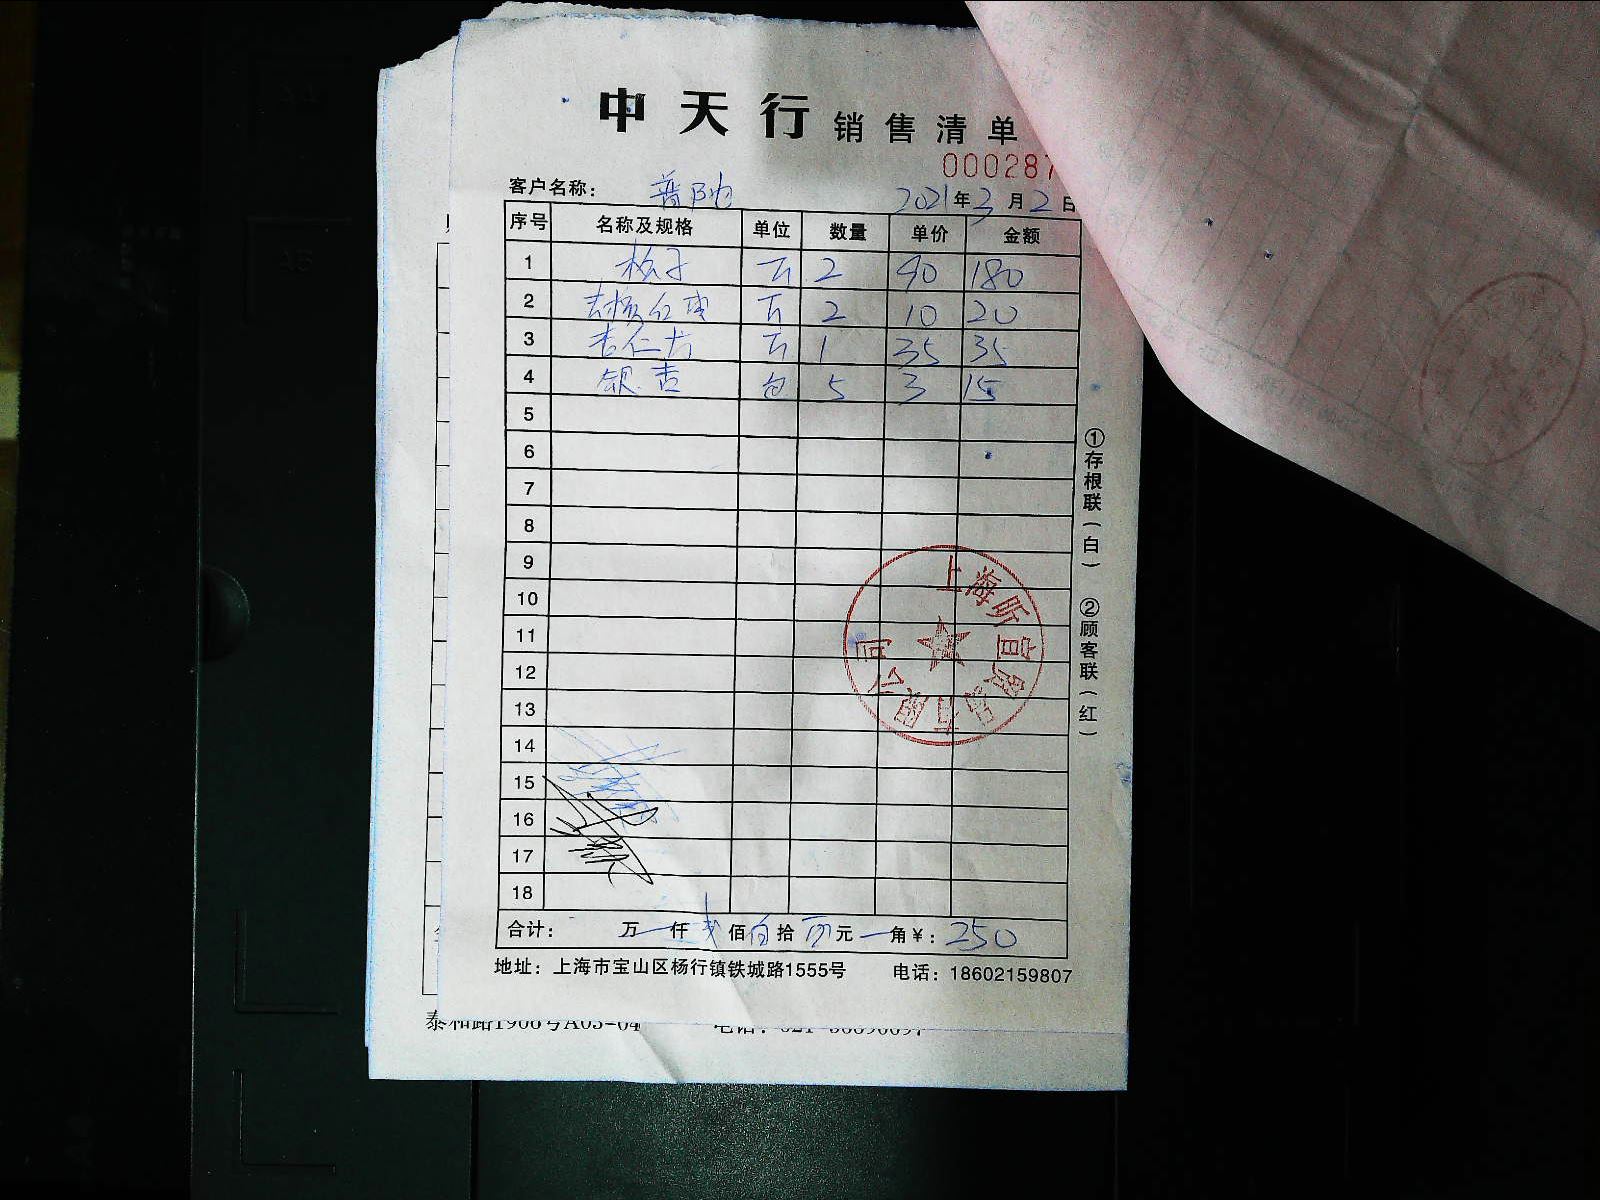 中天行 销售清单
000287
客户名称： 普陀
2021年3月2日
序号 名称及规格 单位 数量 单价 金额
1 斤 2 90 180
2 去核红枣 斤 2 10 20
3 杏仁片 斤 1 35 35
4 银杏 包 5 3 15
5
6
7
8
9
10
11
12
13
14
15
16
17
18
合计： 万 一 仟 贰 佰 伍 拾 元 一 角 ¥： 250
地址： 上海市宝山区杨行镇铁城路1555号 电话： 18602159807
①存根联（白） ②顾客联（红）
上海昕 贸易有限公司
泰和路1908号A03-04 电话：021-